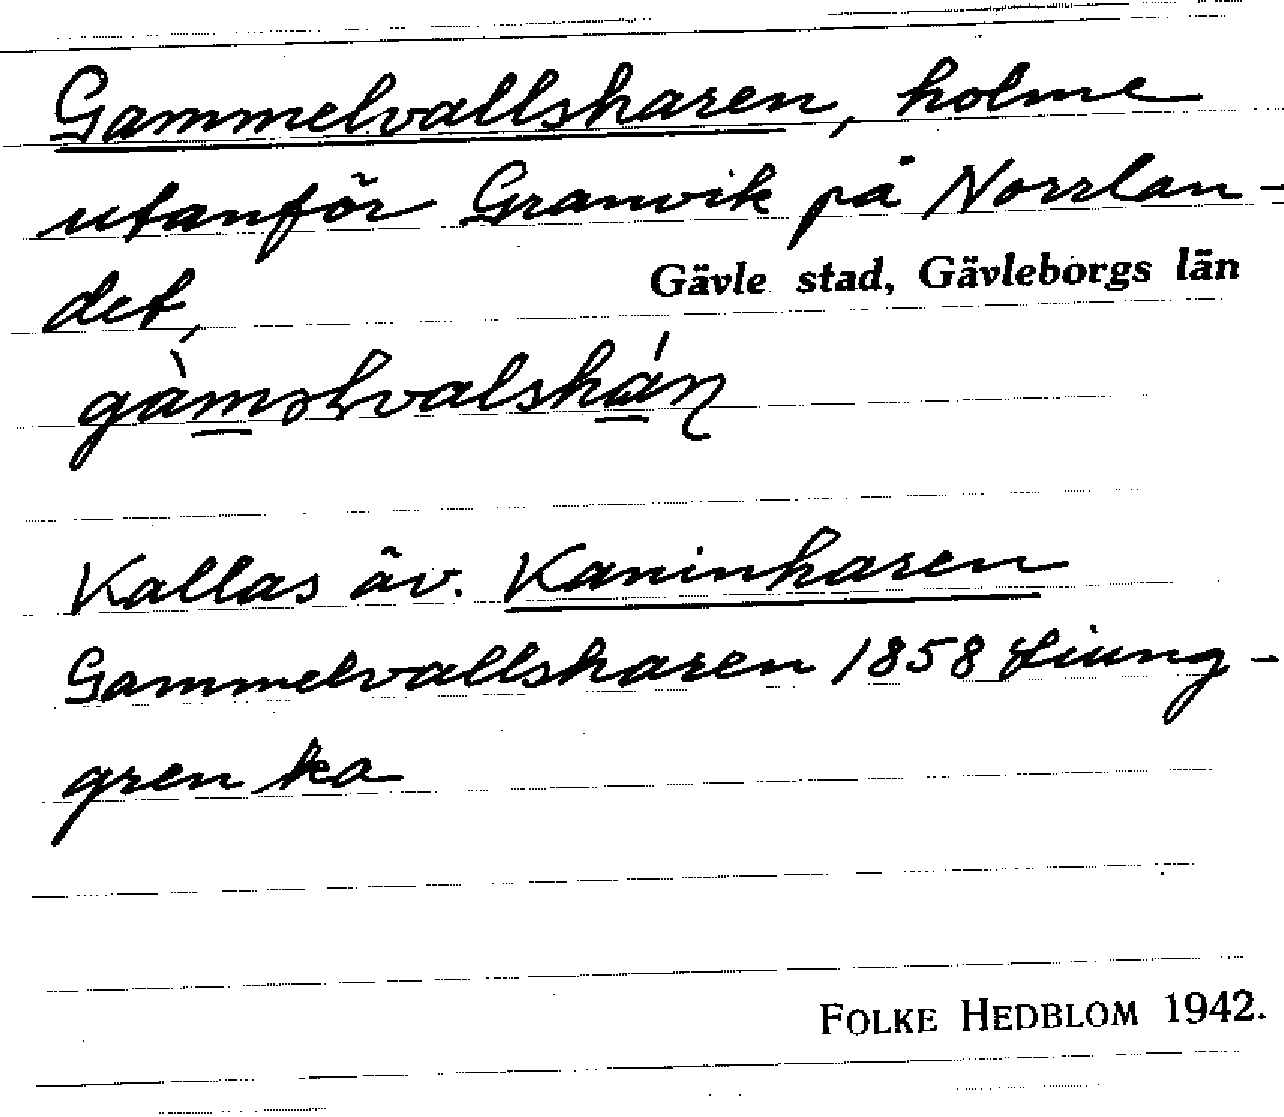 Gammelvallsharen, holme
utanför Granvik på Norrlan-
det,
Gävle stad, Gävleborgs län
Kallas äv. Kaninharen
Gammelvallsharen 1858 Liung-
gren ka
FOLKE HEDBLOM 1942.